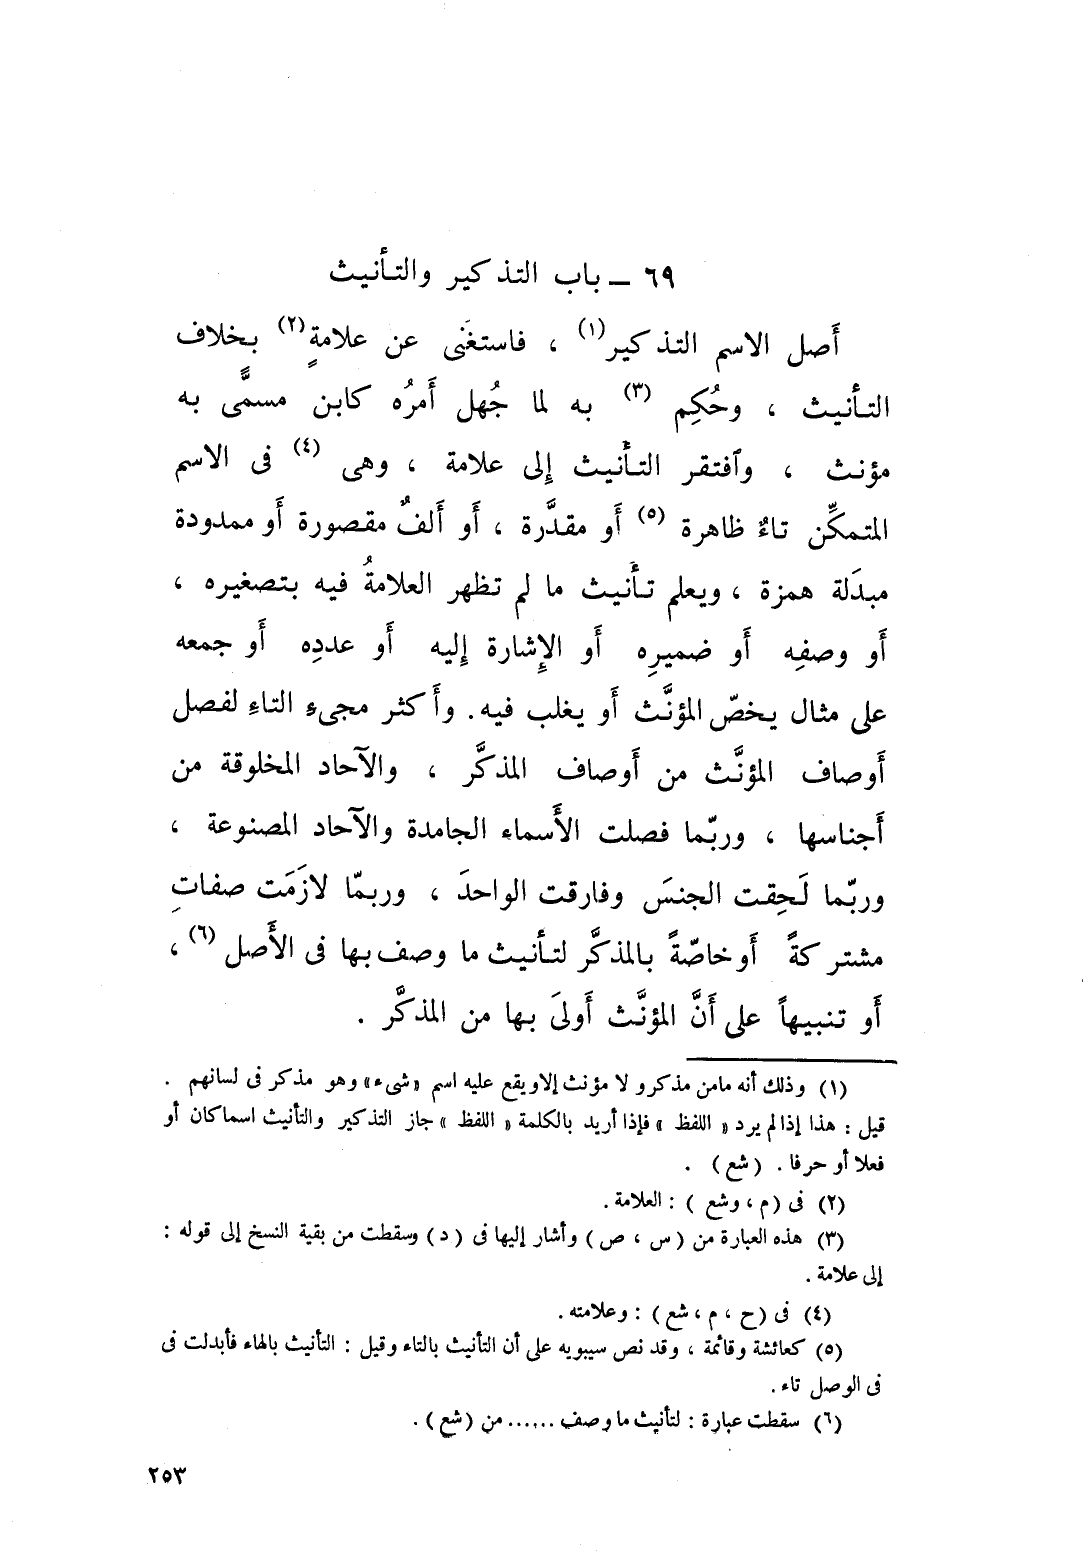 ٦٩ – باب التذكير والتأنيث
أَصل الاسم التذكير(١) ، فاستغنَى عن علامةٍ(٢) بخلاف
التأنيث ، وحُكِم (٣) به لما جُهل أَمرُه كابن مسمًّى به
مؤنث ، وٱفتقر التأنيث إلى علامة ، وهى (٤) فى الاسم
المتمكِّن تاءٌ ظاهرة (٥) أَو مقدَّرة ، أَو أَلفٌ مقصورة أَو ممدودة
مبدَلة همزة ، ويعلم تأنيث ما لم تظهر العلامةُ فيه بتصغيره ،
أَو وصفِه أَو ضميرِه أَو الإِشارة إليه أَو عددِه أَو جمعه
على مثال يخصّ المؤنَّث أَو يغلب فيه. وأَكثر مجىء التاءِ لفصل
أَوصاف المؤنَّث من أَوصاف المذكَّر ، والآحاد المخلوقة من
أَجناسها ، وربّما فصلت الأَسماء الجامدة والآحاد المصنوعة ،
وربّما لَحِقت الجنسَ وفارقت الواحدَ ، وربمّا لازَمَت صفاتِ
مشتركةً أَو خاصّةً بالمذكَّر لتأنيث ما وصف بها فى الأَصل (٦) ،
أَو تنبيهاً على أَنَّ المؤنَّث أَولىَ بها من المذكَّر .
(١) وذلك أنه مامن مذكر و لا مؤنث إلا ويقع عليه اسم «شىء» وهو مذكر فى لسانهم .
قيل : هذا إذا لم يرد « اللفظ » فإذا أريد بالكلمة « اللفظ » جاز التذكير والتأنيث اسما كان أو
فعلا أو حرفا . (شع) .
(٢) فى (م ، وشع ) : العلامة .
(٣) هذه العبارة من (س ، ص) وأشار إليها فى (د) وسقطت من بقية النسخ إلى قوله :
إلى علامة .
(٤) فى (ح ، م ، شع) : وعلامته .
(٥) كعائشة وقائمة ، وقد نص سيبويه على أن التأنيث بالتاء وقيل : التأنيث بالهاء فأبدلت فى
فى الوصل تاء .
(٦) سقطت عبارة : لتأنيث ما وصف ...... من (شع) .
٢٥٣